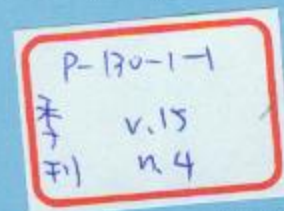 P-130-1-1
季 v.15
刊 n.4